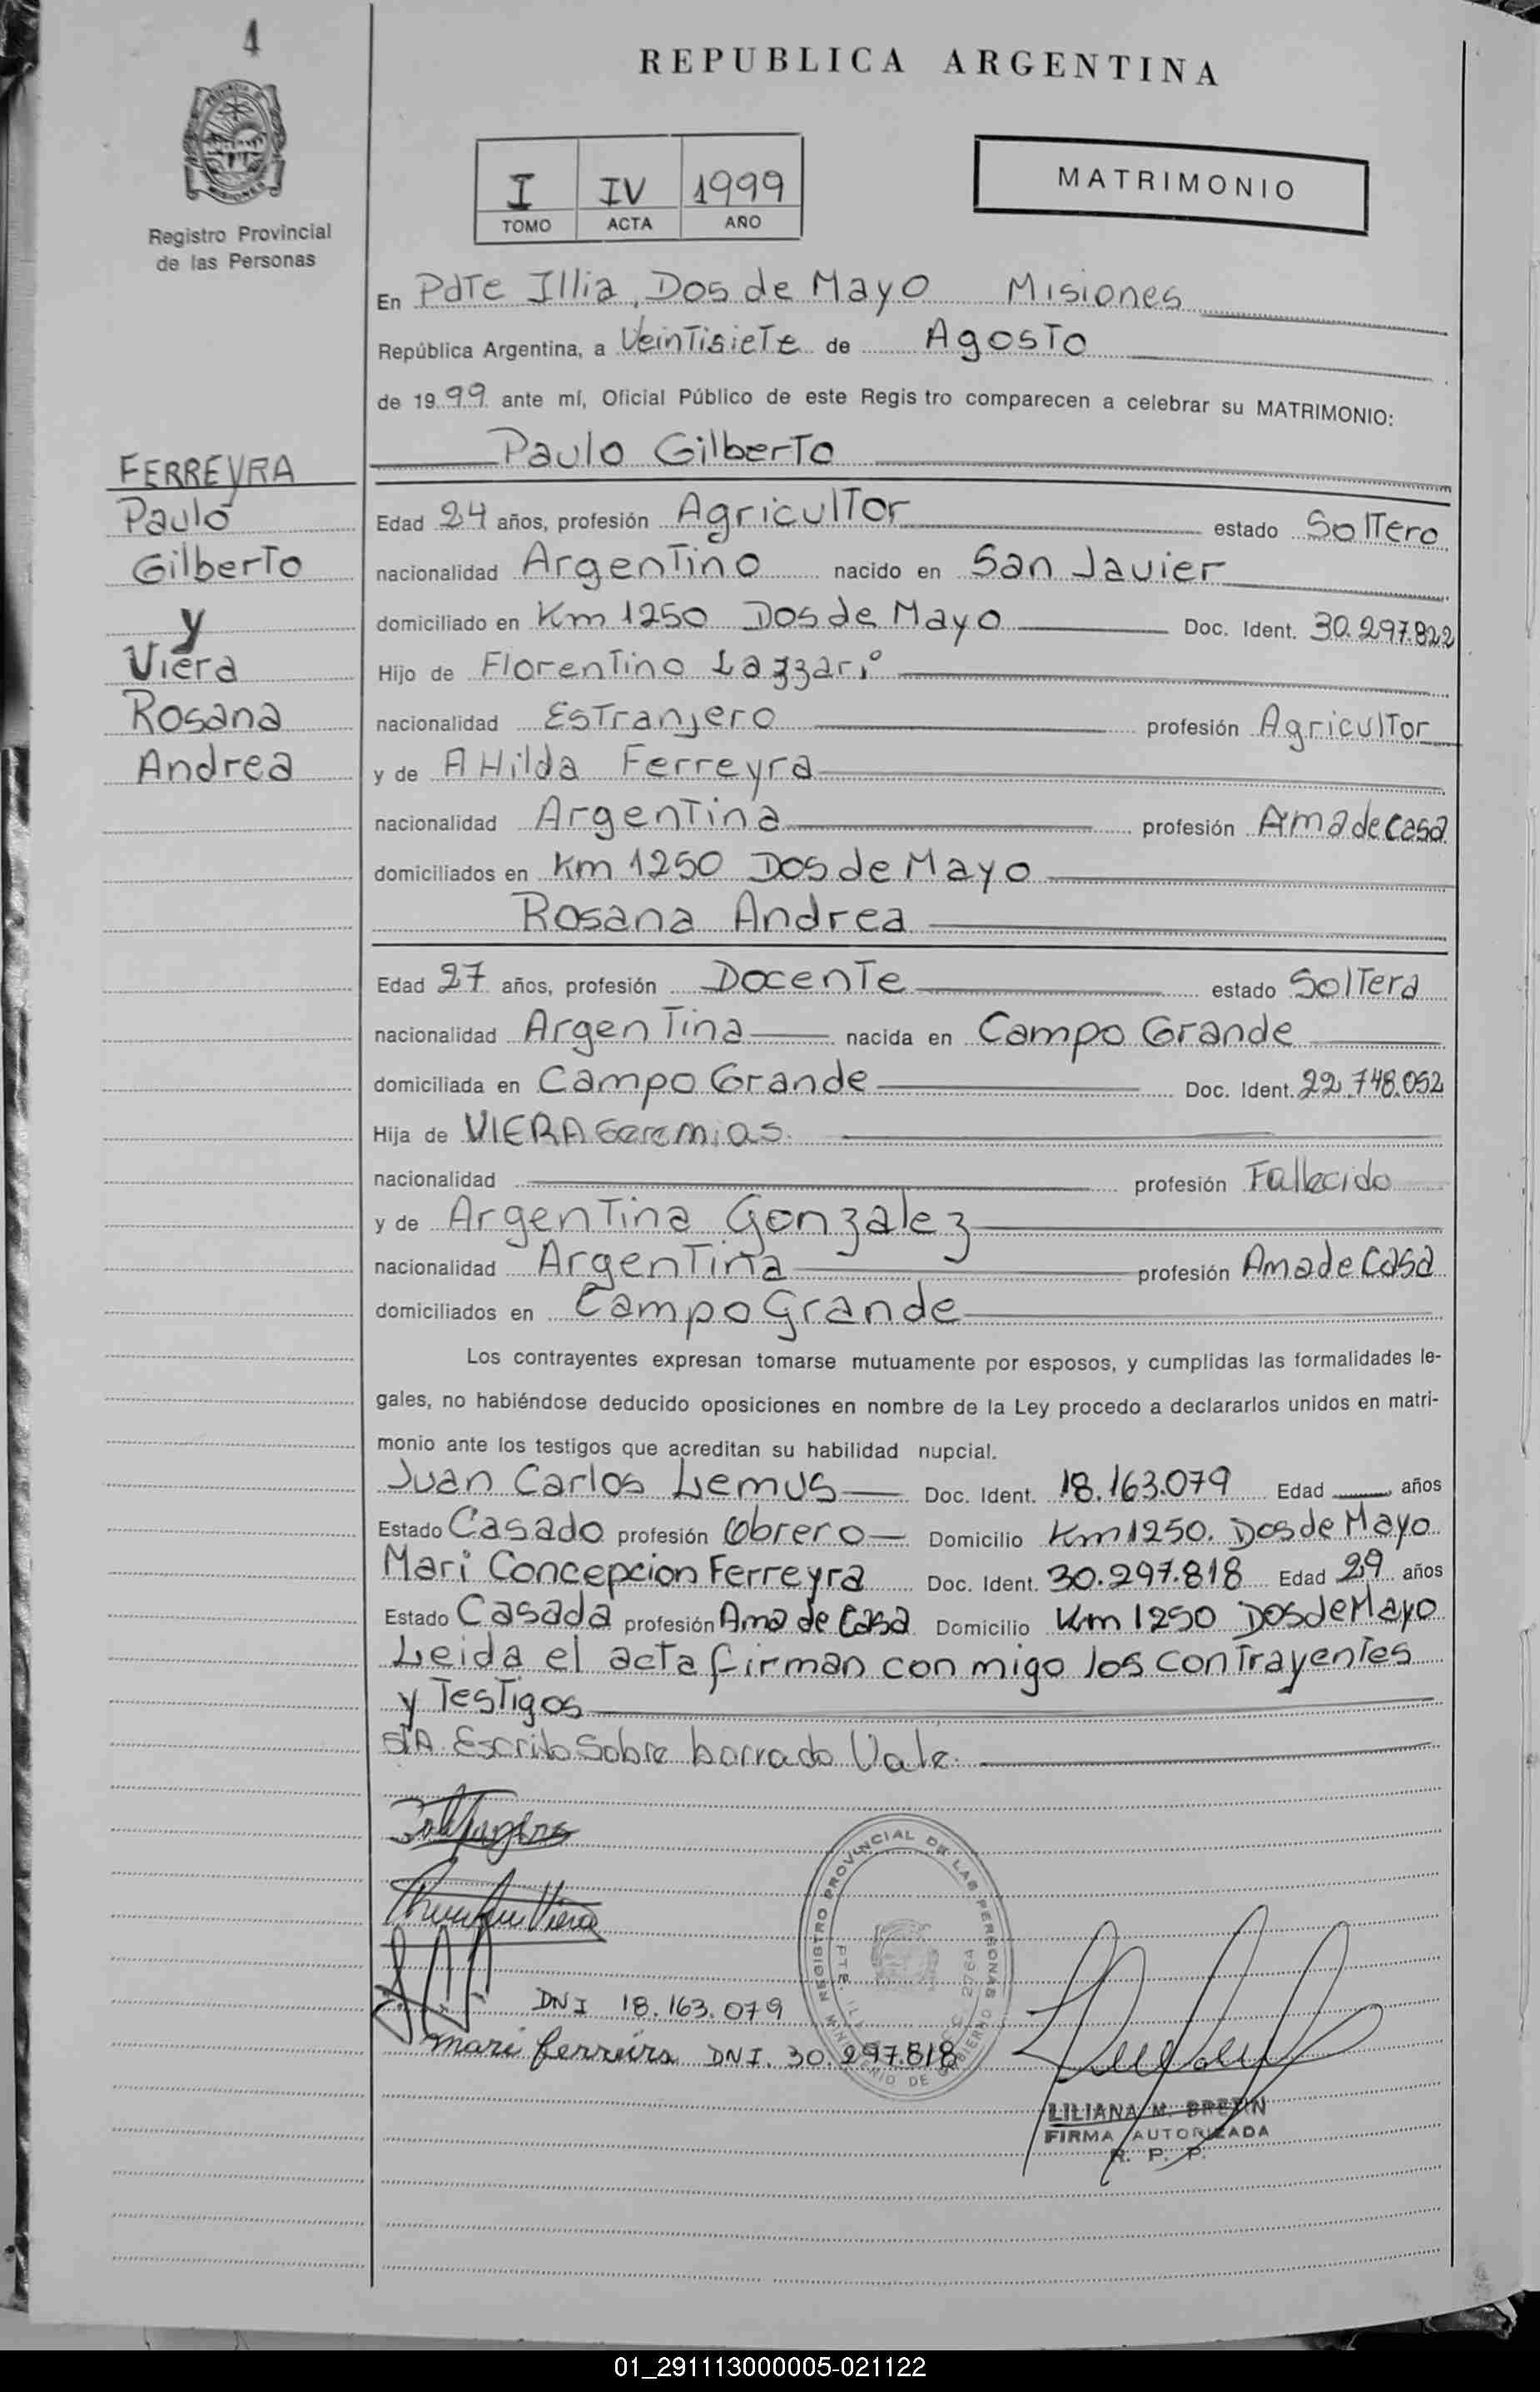 4
REPUBLICA ARGENTINA
PROVINCIA DE MISIONES
Registro Provincial
de las Personas
I IV 1999
TOMO ACTA AÑO
MATRIMONIO
En PdTe Illia, Dos de Mayo Misiones
República Argentina, a VeinTisieTe de AgosTo
de 1999 ante mí, Oficial Público de este Regis tro comparecen a celebrar su MATRIMONIO:
FERREYRA
Paulo
Gilberto
y
Viera
Rosana
Andrea
Paulo Gilberto
Edad 24 años, profesión Agricultor estado Soltero
nacionalidad Argentino nacido en San Javier
domiciliado en Km 1250 Dos de Mayo Doc. Ident. 30.297.822
Hijo de Florentino Lazzari
nacionalidad Estranjero profesión Agricultor
y de A Hilda Ferreyra
nacionalidad Argentina profesión Ama de casa
domiciliados en Km 1250 Dos de Mayo
Rosana Andrea
Edad 27 años, profesión Docente estado Soltera
nacionalidad Argentina nacida en Campo Grande
domiciliada en Campo Grande Doc. Ident. 22.748.052
Hija de VIERA Geremias.
nacionalidad profesión Fallecido
y de Argentina Gonzalez
nacionalidad Argentina profesión Ama de Casa
domiciliados en Campo Grande
Los contrayentes expresan tomarse mutuamente por esposos, y cumplidas las formalidades le-
gales, no habiéndose deducido oposiciones en nombre de la Ley procedo a declararlos unidos en matri-
monio ante los testigos que acreditan su habilidad nupcial.
Juan Carlos Lemus Doc. Ident. 18.163.079 Edad años
Estado Casado profesión Obrero Domicilio Km 1250. Dos de Mayo
Mari Concepcion Ferreyra Doc. Ident. 30.297.818 Edad 29 años
Estado Casada profesión Ama de Casa Domicilio Km 1250 Dos de Mayo
Leida el acta firman con migo los contrayentes
y Testigos
Escrito Sobre borrado Vale.
Viera
DNI 18.163.079
Mari Ferreira DNI. 30.297.818
REGISTRO PROVINCIAL DE LAS PERSONAS
MINISTERIO DE GOBIERNO
2764
LILIANA M. BREXIN
FIRMA AUTORIZADA
R. P. P.
01_291113000005-021122